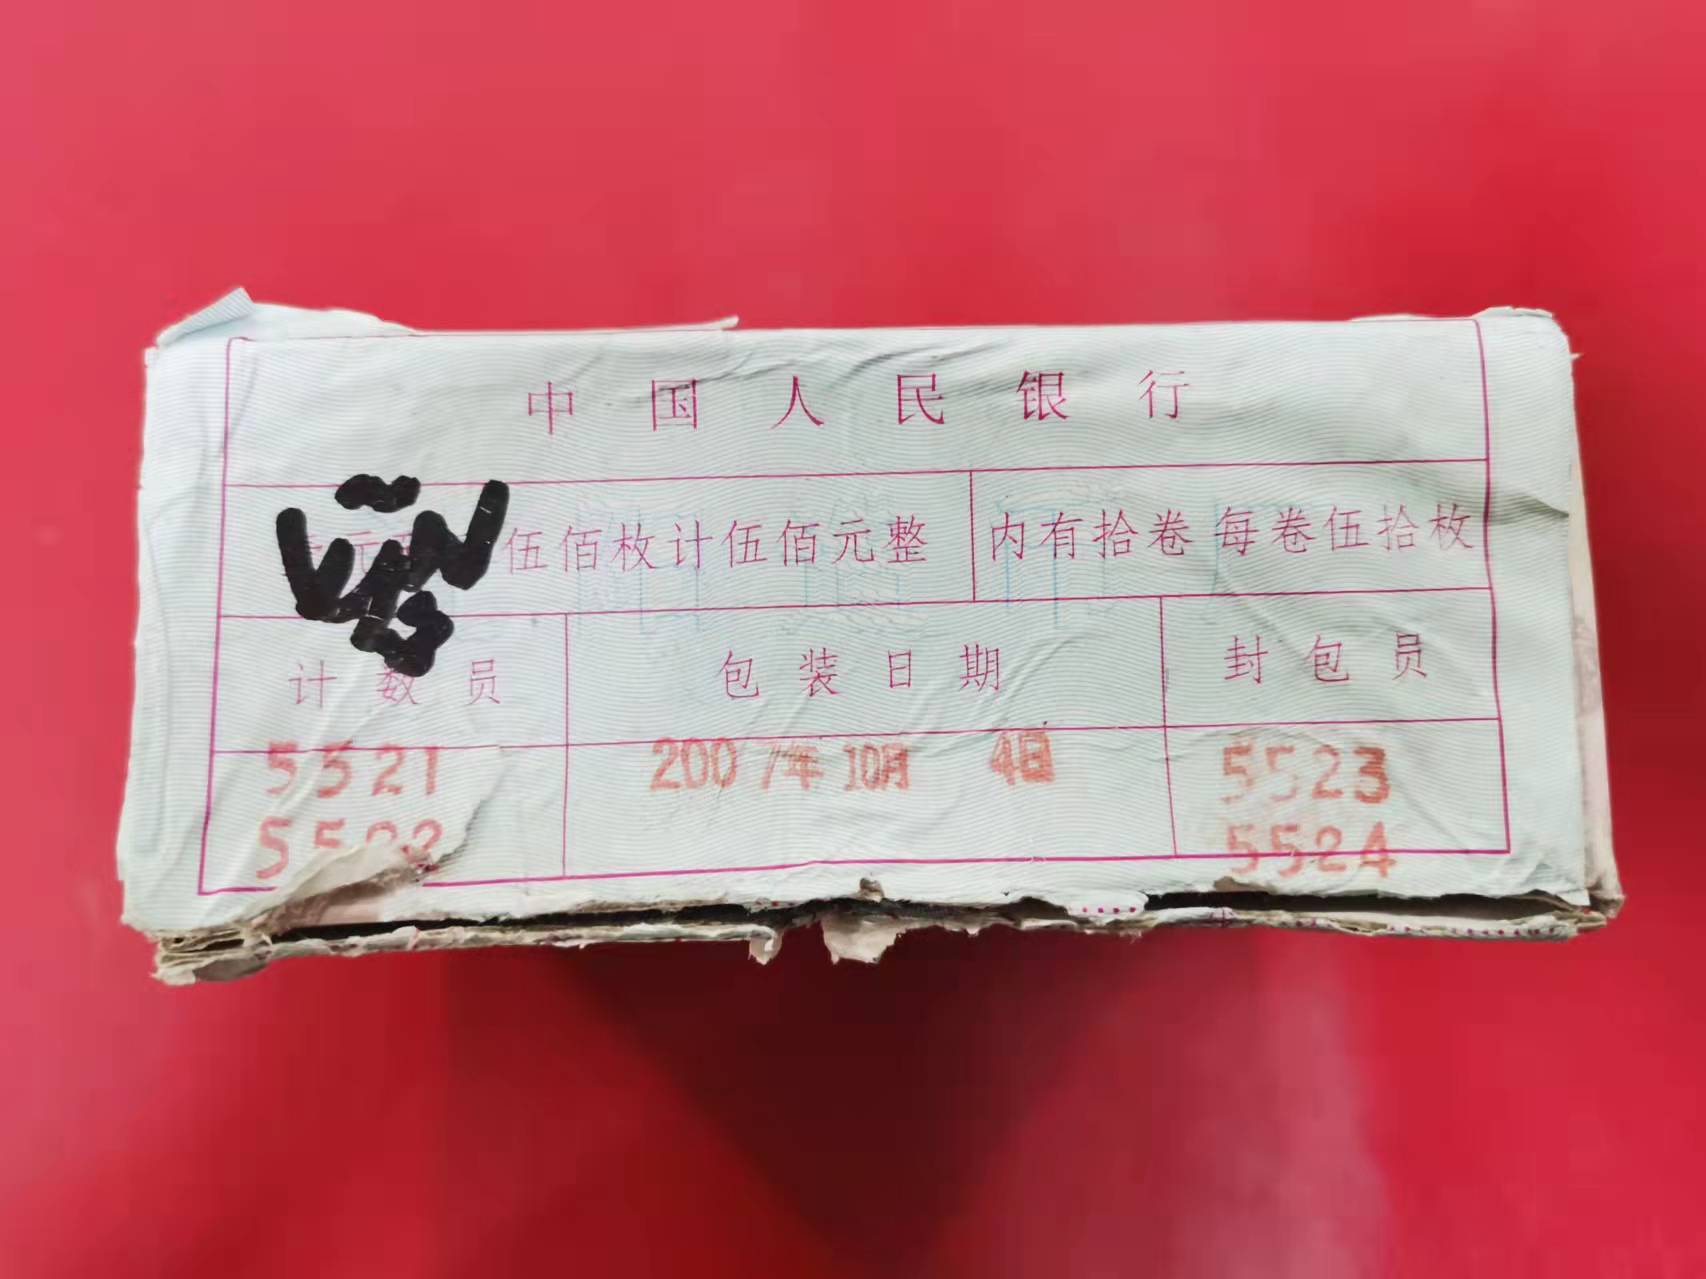 中国人民银行
伍佰枚计伍佰元整 内有拾卷 每卷伍拾枚
计数员 包装日期 封包员
5521 2007年 10月 4日 5523
5522 5524